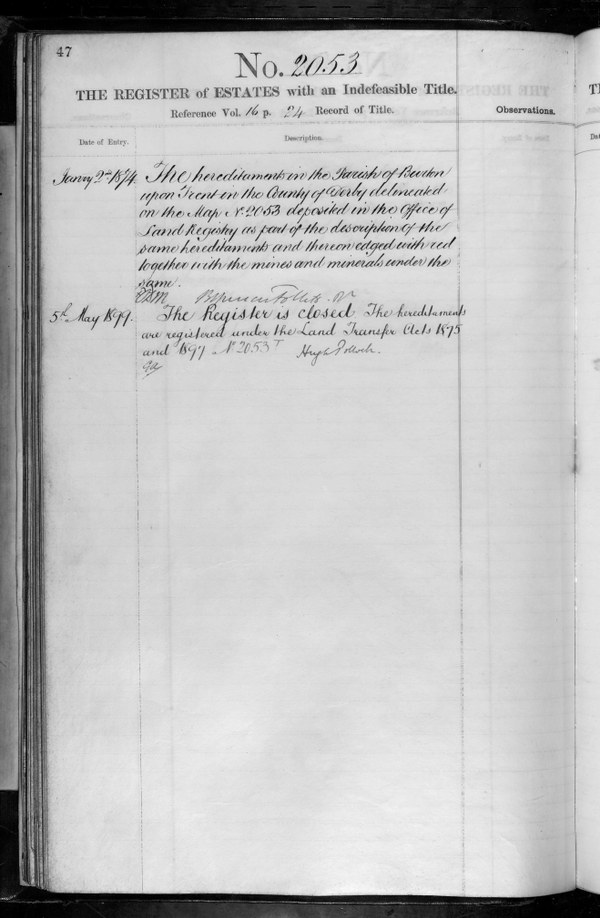 47
No. 2053
THE REGISTER of ESTATES with an Indefeasible Title.
Reference Vol. 16 p. 24 Record of Title.
Observations.
Date of Entry.
Description.
2nd 1874. The hereditaments in the Parish of
upon Trent in the County of Derby delineated
on the Map No. 2053 deposited in the Office of
Land Registry as part of the description of the
same hereditaments and thereon edged with red
together with the mines and minerals under the
same.
5th May 1899. The Register is closed The hereditaments
are registered under the Land Transfer Acts 1875
and 1897 No 2053 T Hugh Pollock.